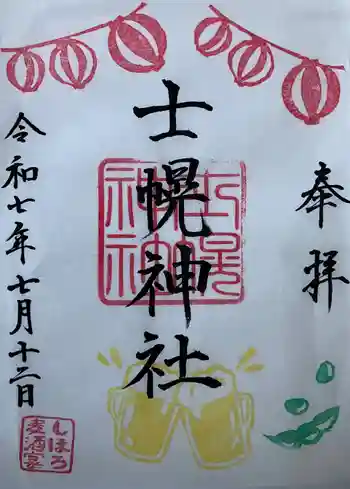 奉拝
士幌神社
士幌
神社
令和七年七月十二日
しほろ
麦酒宴